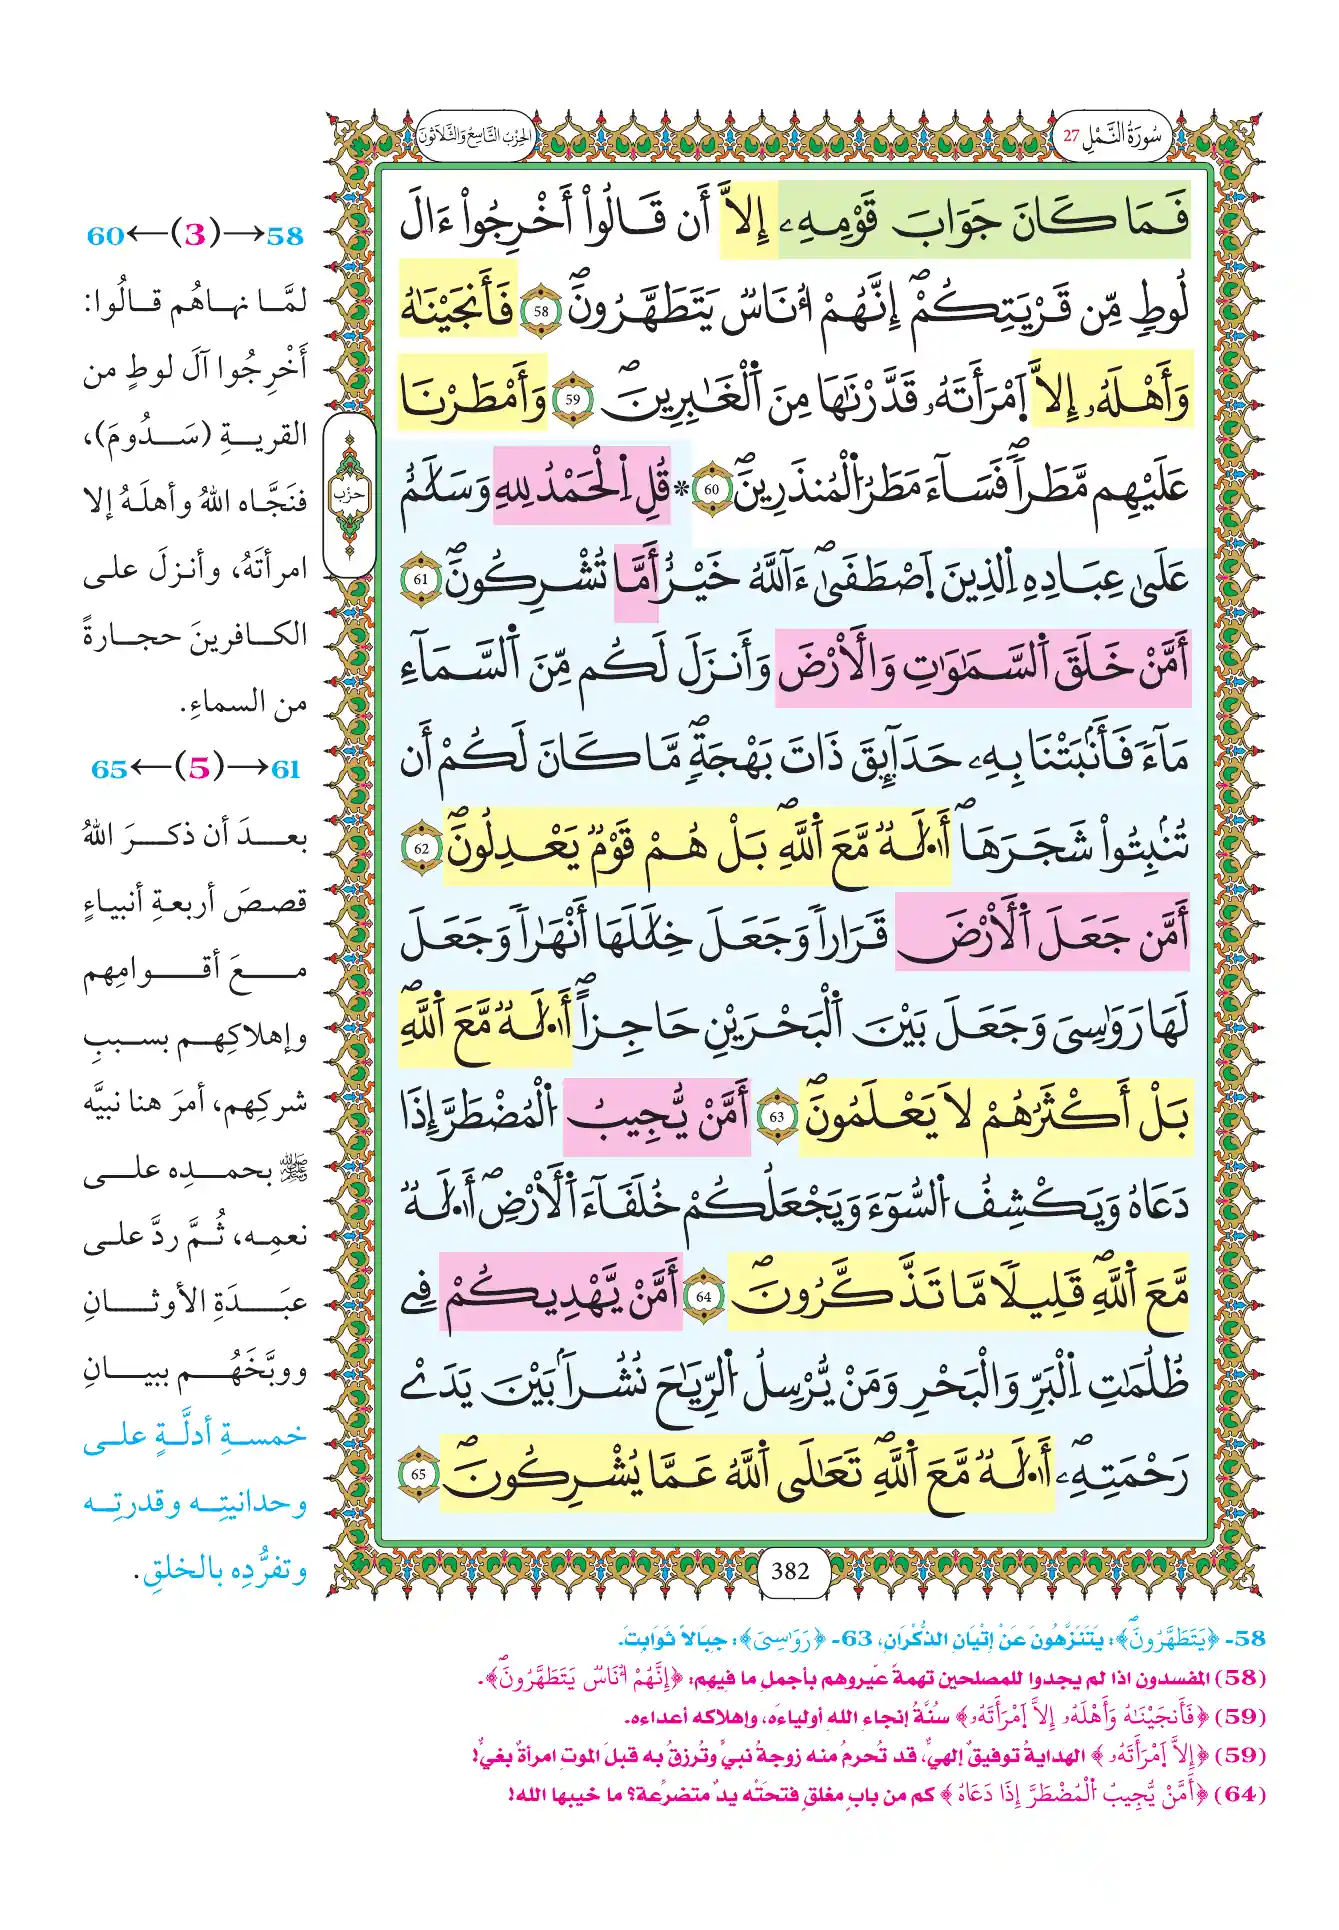 سُورَةُ النَّمْلِ 27
الحِزْبُ التَّاسِعُ وَالثَّلَاثُونَ
فَمَا كَانَ جَوَابَ قَوْمِهِۦ إِلَّا أَن قَالُوا۟ أَخْرِجُوا۟ ءَالَ
لُوطٍ مِّن قَرْيَتِكُمْۖ إِنَّهُمْ أُنَاسٌ يَتَطَهَّرُونَۖ 58 فَأَنجَيْنَٰهُ
وَأَهْلَهُۥ إِلَّا اَ۪مْرَأَتَهُۥ قَدَّرْنَٰهَا مِنَ اَ۬لْغَٰبِرِينَۖ 59 وَأَمْطَرْنَا
عَلَيْهِم مَّطَراٗۖ فَسَآءَ مَطَرُ اُ۬لْمُنذَرِينَۖ 60 * قُلِ اِ۬لْحَمْدُ لِلهِ وَسَلَٰمٌ
عَلَىٰ عِبَادِهِ اِ۬لذِينَ اَ۪صْطَفَىٰۖ ءَآللَّهُ خَيْرٌ أَمَّا تُشْرِكُونَۖ 61
أَمَّنْ خَلَقَ اَ۬لسَّمَٰوَٰتِ وَالْأَرْضَ وَأَنزَلَ لَكُم مِّنَ اَ۬لسَّمَآءِ
مَآءٗ فَأَنۢبَتْنَا بِهِۦ حَدَآئِقَ ذَاتَ بَهْجَةٖۖ مَّا كَانَ لَكُمْ أَن
تُنۢبِتُوا۟ شَجَرَهَاۖ أَ۟لَٰهٌ مَّعَ اَ۬للَّهِۖ بَلْ هُمْ قَوْمٌ يَعْدِلُونَۖ 62
أَمَّن جَعَلَ اَ۬لْأَرْضَ قَرَاراٗ وَجَعَلَ خِلَٰلَهَا أَنْهَٰراٗ وَجَعَلَ
لَهَا رَوَٰسِىَ وَجَعَلَ بَيْنَ اَ۬لْبَحْرَيْنِ حَاجِزاًۖ أَ۟لَٰهٌ مَّعَ اَ۬للَّهِۖ
بَلْ أَكْثَرُهُمْ لَا يَعْلَمُونَۖ 63 أَمَّنْ يُّجِيبُ اُ۬لْمُضْطَرَّ إِذَا
دَعَاهُ وَيَكْشِفُ اُ۬لسُّوٓءَ وَيَجْعَلُكُمْ خُلَفَآءَ اَ۬لْأَرْضِۖ أَ۟لَٰهٌ
مَّعَ اَ۬للَّهِۖ قَلِيلًا مَّا تَذَّكَّرُونَۖ 64 أَمَّنْ يَّهْدِيكُمْ فِى
ظُلُمَٰتِ اِ۬لْبَرِّ وَالْبَحْرِ وَمَنْ يُّرْسِلُ اُ۬لرِّيَٰحَ نُشُراَۢ بَيْنَ يَدَىْ
رَحْمَتِهِۦۖ أَ۟لَٰهٌ مَّعَ اَ۬للَّهِۖ تَعَٰلَى اَ۬للَّهُ عَمَّا يُشْرِكُونَۖ 65
382
حزب
58→(3)←60
لمَّا نهاهُم قالُوا:
أَخْرِجُوا آلَ لوطٍ من
القريةِ (سَدُومَ)،
فنَجَّاه اللهُ وأهلَهُ إلا
امرأتَهُ، وأنزلَ على
الكافرينَ حجارةً
من السماءِ.
61→(5)←65
بعدَ أن ذكرَ اللهُ
قصصَ أربعةِ أنبياءٍ
معَ أقوامِهم
وإهلاكِهم بسببِ
شركِهم، أمرَ هنا نبيَّه
ﷺ بحمدِه على
نعمِه، ثُمَّ ردَّ على
عبَدَةِ الأوثانِ
ووبَّخَهُم ببيانِ
خمسةِ أدلَّةٍ على
وحدانيتِه وقدرتِه
وتفرُّدِه بالخلقِ.
58- ﴿يَتَطَهَّرُونَۖ﴾: يَتَنَزَّهُونَ عَنْ إِتْيَانِ الذُّكْرَانِ، 63- ﴿رَوَٰسِىَ﴾: جِبَالاً ثَوَابِتَ.
(58) المفسدون اذا لم يجدوا للمصلحين تهمةً عيروهم بأجملِ ما فيهِم: ﴿إِنَّهُمْ أُنَاسٌ يَتَطَهَّرُونَۖ﴾.
(59) ﴿فَأَنجَيْنَٰهُ وَأَهْلَهُۥ إِلَّا اَ۪مْرَأَتَهُۥ﴾ سُنَّةُ إنجاءِ اللهِ أولياءَه، وإهلاكه أعداءه.
(59) ﴿إِلَّا اَ۪مْرَأَتَهُۥ﴾ الهدايةُ توفيقٌ إلهيٌّ، قد تُحرمُ منه زوجةُ نبيٍّ وتُرزقُ به قبلَ الموتِ امرأةٌ بغيٌّ!
(64) ﴿أَمَّنْ يُّجِيبُ اُ۬لْمُضْطَرَّ إِذَا دَعَاهُ﴾ كم من بابٍ مغلقٍ فتحَتْه يدٌ متضرِّعة؟ ما خيبها الله!